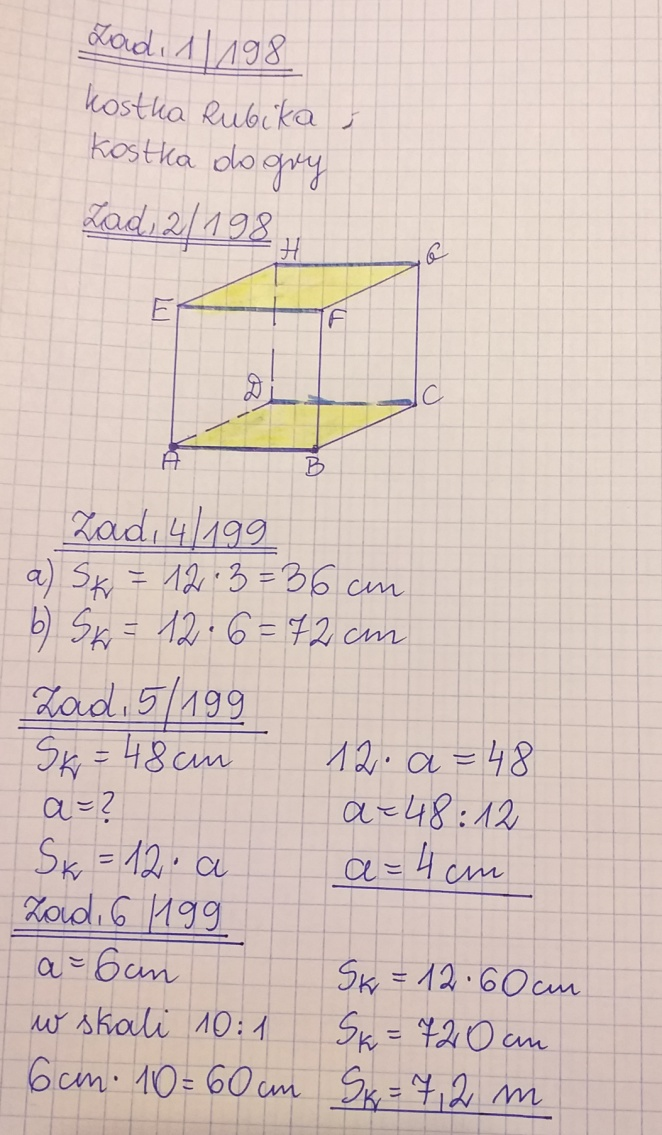 Zad. 1/198
kostka Rubika,
kostka do gry
Zad. 2/198
H
G
E
F
D
C
A
B
Zad. 4/199
a) Sk = 12·3 = 36 cm
b) Sk = 12·6 = 72 cm
Zad. 5/199
Sk = 48 cm
a = ?
Sk = 12·a
12·a = 48
a = 48:12
a = 4 cm
Zad. 6/199
a = 6 cm
w skali 10:1
6 cm·10 = 60 cm
Sk = 12·60 cm
Sk = 720 cm
Sk = 7,2 m